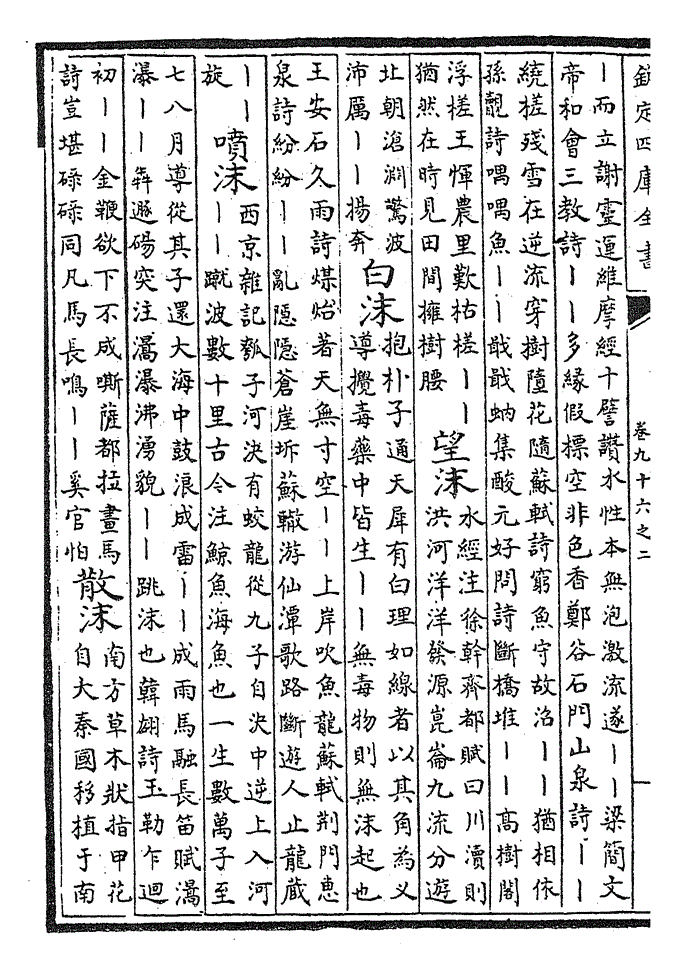 欽定四庫全書
卷九十六之二
｜而立謝靈運維摩經十譬讚水性本無泡激流遂｜｜梁簡文
帝和會三教詩｜｜多緣假標空非色香鄭谷石門山泉詩｜｜
繞槎殘雪在逆流穿樹墮花隨蘇軾詩窮魚守故沼｜｜猶相依
孫覿詩喁喁魚｜｜戢戢蚋集酸元好問詩斷橋堆｜｜高樹閣
浮槎王惲農里歎枯槎｜｜
猶然在時見田間擁樹腰
望沫
水經注徐幹齊都賦曰川瀆則
洪河洋洋發源崑崙九流分遊
北朝滄淵驚波
沛厲｜｜揚奔
白沫
抱朴子通天犀有白理如線者以其角為义
導攪毒藥中皆生｜｜無毒物則無沫起也
王安石久雨詩煤炲著天無寸空｜｜上岸吹魚龍蘇軾荆門惠
泉詩紛紛｜｜亂隱隱蒼崖坼蘇轍游仙潭歌路斷遊人止龍藏
｜｜
旋
噴沫
西京雜記瓠子河決有蛟龍從九子自決中逆上入河
｜｜蹴波數十里古今注鯨魚海魚也一生數萬子至
七八月導從其子還大海中鼓浪成雷｜｜成雨馬融長笛賦滈
瀑｜｜犇遯碭突注滈瀑沸湧貌｜｜跳沫也韓翃詩玉勒乍迴
初｜｜金鞭欲下不成嘶薩都拉畫馬
詩豈堪碌碌同凡馬長鳴｜｜奚官怕
散沫
南方草木狀指甲花
自大秦國移植于南